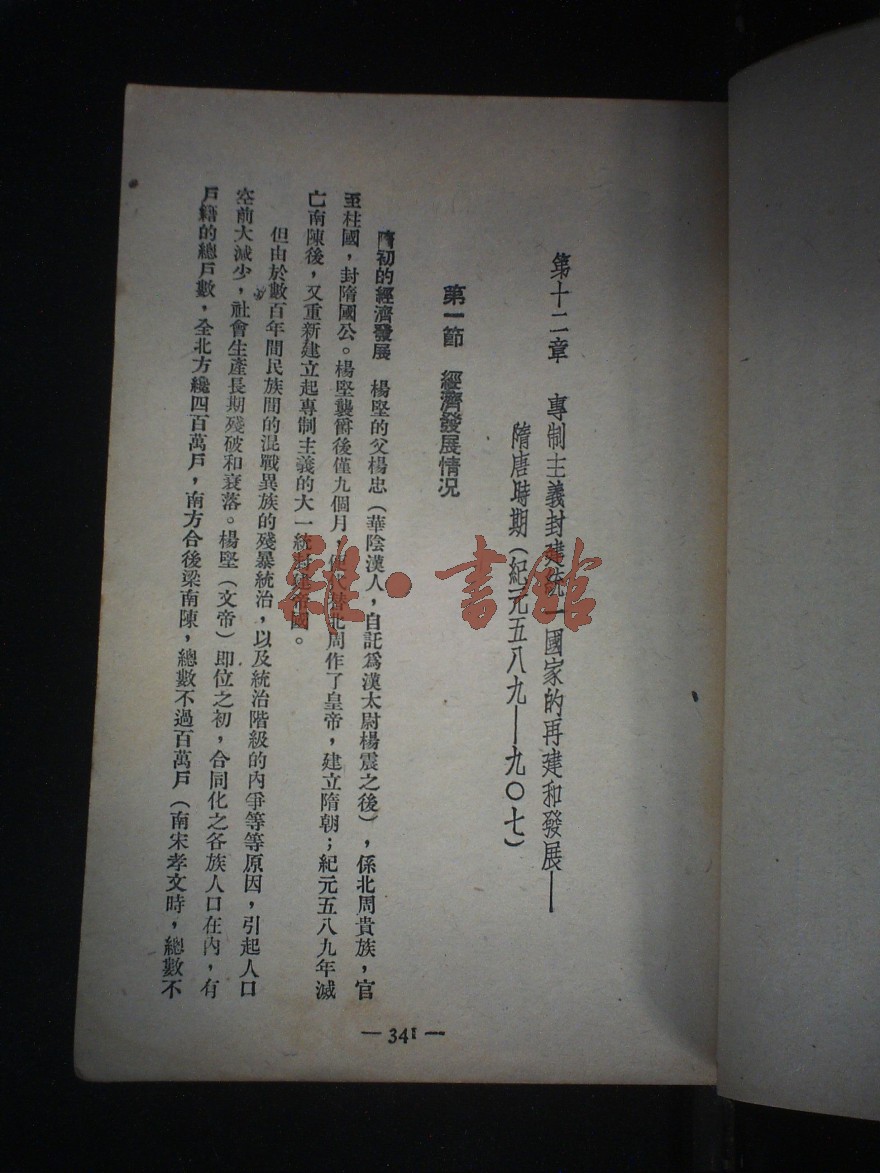 第十二章　專制主義封建統一國家的再建和發展—
隋唐時期（紀元五八九—九〇七）
第一節　經濟發展情況
隋初的經濟發展　楊堅的父楊忠（華陰漢人，自託爲漢太尉楊震之後），係北周貴族，官
至柱國，封隋國公。楊堅襲爵後僅九個月，便代替北周作了皇帝，建立隋朝；紀元五八九年滅
亡南陳後，又重新建立起專制主義的大一統封建帝國。
但由於數百年間民族間的混戰異族的殘暴統治，以及統治階級的內爭等等原因，引起人口
空前大減少，社會生產長期殘破和衰落。楊堅（文帝）即位之初，合同化之各族人口在內，有
戶籍的總戶數，全北方纔四百萬戶，南方合後梁南陳，總數不過百萬戶（南宋孝文時，總數不
— 341 —
雜·書館